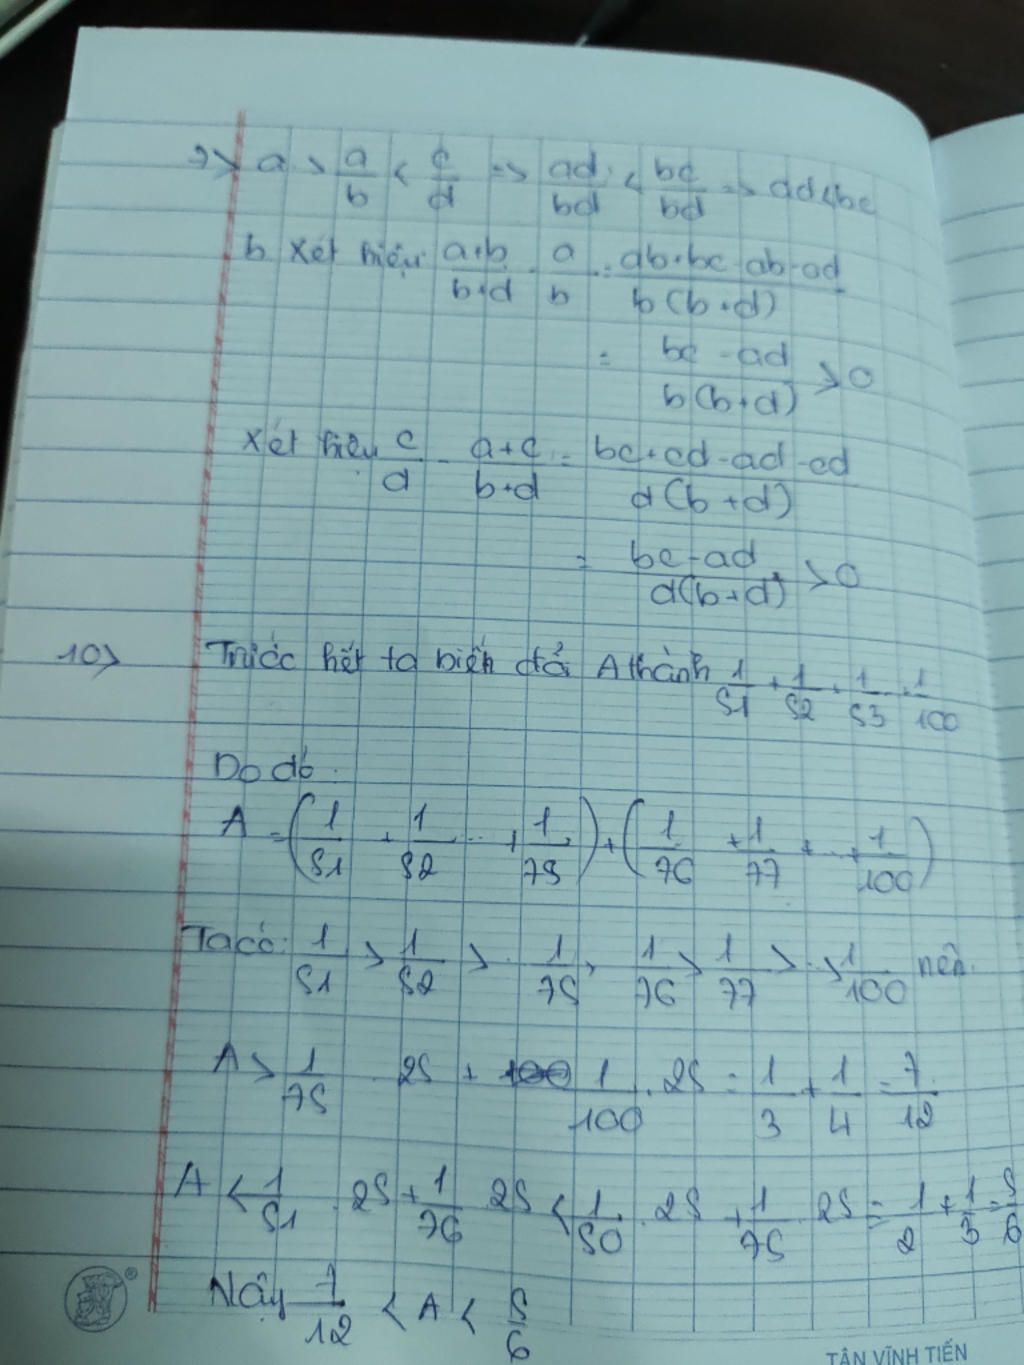 9> a > a/b < c/d => ad/bd < bc/bd => ad < bc
b Xét hiệu a+b/b+d - a/b = ab+bc-ab-ad/b(b+d)
= bc-ad/b(b+d) > 0
Xét hiệu c/d - a+c/b+d = bc+cd-ad-cd/d(b+d)
= bc-ad/d(b+d) > 0
10> Trước hết ta biến đổi A thành 1/51 + 1/52 + 1/53 . 1/100
Do đó:
A = (1/51 + 1/52 ... + 1/75) + (1/76 + 1/77 + ... + 1/100)
Ta có: 1/51 > 1/52 > . 1/75 , 1/76 > 1/77 > .. > 1/100 nên
A > 1/75 . 25 + 1/100 . 25 = 1/3 + 1/4 = 7/12
A < 1/51 . 25 + 1/76 . 25 < 1/50 . 25 + 1/75 . 25 = 1/2 + 1/3 = 5/6
Nậy 7/12 < A < 5/6
TÂN VĨNH TIẾN